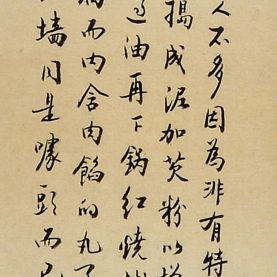 人不多因為非有特
搗成泥加芡粉以
油再下鍋紅燒
而內含肉餡的丸
墻同是噱頭而已